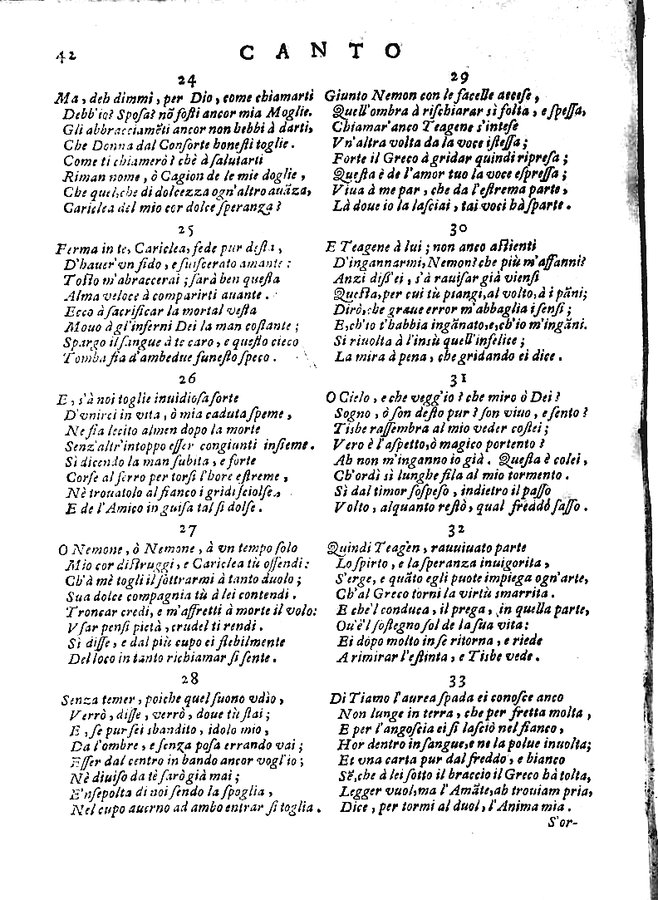 42
CANTO
24
Ma, deh dimmi, per Dio, come chiamarti
Debb'io? Sposa? nō fosti ancor mia Moglie.
Gli abbracciamēti ancor non hebbi à darti,
Che Donna dal Consorte honesti toglie.
Come ti chiamerò? chè à salutarti
Riman nome, ò Cagion de le mie doglie,
Che quel, che di dolcezza ogn'altro auāza,
Cariclea del mio cor dolce speranza?
25
Ferma in te, Cariclea, fede pur desta,
D'hauer'vn fido, e suiscerato amante:
Tosto m'abbraccerai; sarà ben questa
Alma veloce à comparirti auante.
Ecco à sacrificar la mortal vesta
Mouo à gl'inferni Dei la man costante;
Spargo il sangue à te caro, e questo cieco
Tomba fia d'ambedue funesto speco.
26
E, s'à noi toglie inuidiosa sorte
D'vnirci in vita, ò mia caduta speme,
Ne sia lecito almen dopo la morte
Senz'altr'intoppo esser congiunti insieme.
Sì dicendo la man subita, e forte
Corse al ferro per torsi l'hore estreme,
Nè trouatolo al fianco i gridi sciolse,
E de l'Amico in guisa tal si dolse.
27
O Nemone, ò Nemone, à vn tempo solo
Mio cor distruggi, e Cariclea tù offendi:
Ch'à mè togli il sottrarmi à tanto duolo;
Sua dolce compagnia tù à lei contendi.
Troncar credi, e m'affretti à morte il volo:
Vsar pensi pietà, crudel ti rendi.
Sì disse, e dal più cupo ei flebilmente
Del loco in tanto richiamar si sente.
28
Senza temer, poiche quel suono vdìo,
Verrò, disse, verrò, doue tù stai;
E, se pur sei sbandito, idolo mio,
Da l'ombre, e senza posa errando vai;
Esser dal centro in bando ancor vogl'io;
Nè diuiso da tè sarò già mai;
E'nsepolta di noi sendo la spoglia,
Nel cupo auerno ad ambo entrar si toglia.
29
Giunto Nemon con le facelle accese,
Quell'ombra à rischiarar sì folta, e spessa,
Chiamar'anco Teagene s'intese
Vn'altra volta da la voce istessa;
Forte il Greco à gridar quindi riprese;
Questa è de l'amor tuo la voce espressa;
Viua à me par, che da l'estrema parte,
Là doue io la lasciai, tai voci hà sparte.
30
E Teagene à lui; non anco astienti
D'ingannarmi, Nemon? che più m'affanni?
Anzi diss'ei, s'à rauisar già viensi
Questa, per cui tù piangi, al volto, à i pāni;
Dirò, che graue error m'abbaglia i sensi;
E, ch'io t'habbia ingānato, e, ch'io m'ingāni.
Si riuolta à l'insù quell'infelice;
La mira à pena, che gridando ei dice.
31
O Cielo, e che vegg'io? che miro ò Dei?
Sogno, ò son desto pur? son viuo, e sento?
Tisbe rassembra al mio veder costei;
Vero è l'aspetto, ò magico portento?
Ah non m'inganno io già. Questa è colei,
Ch'ordì sì lunghe fila al mio tormento.
Sì dal timor sospeso, indietro il passo
Volto, alquanto restò, qual freddo sasso.
32
Quindi Teagèn, rauuiuato parte
Lo spirto, e la speranza inuigorita,
S'erge, e quāto egli puote impiega ogn'arte,
Ch'al Greco torni la virtù smarrita.
E che'l conduca, il prega, in quella parte,
Ou'è'l sostegno sol de la sua vita:
Ei dopo molto in se ritorna, e riede
A rimirar l'estinta, e Tisbe vede.
33
Di Tiamo l'aurea spada ei conosce anco
Non lunge in terra, che per fretta molta,
E per l'angoscia ei si lasciò nel fianco,
Hor dentro in sangue, e ne la polue inuolta;
Et vna carta pur dal freddo, e bianco
Sē, che à lei sotto il braccio il Greco hà tolta,
Legger vuol, ma l'Amāte, ah trouiam pria,
Dice, per tormi al duol, l'Anima mia.
S'or-